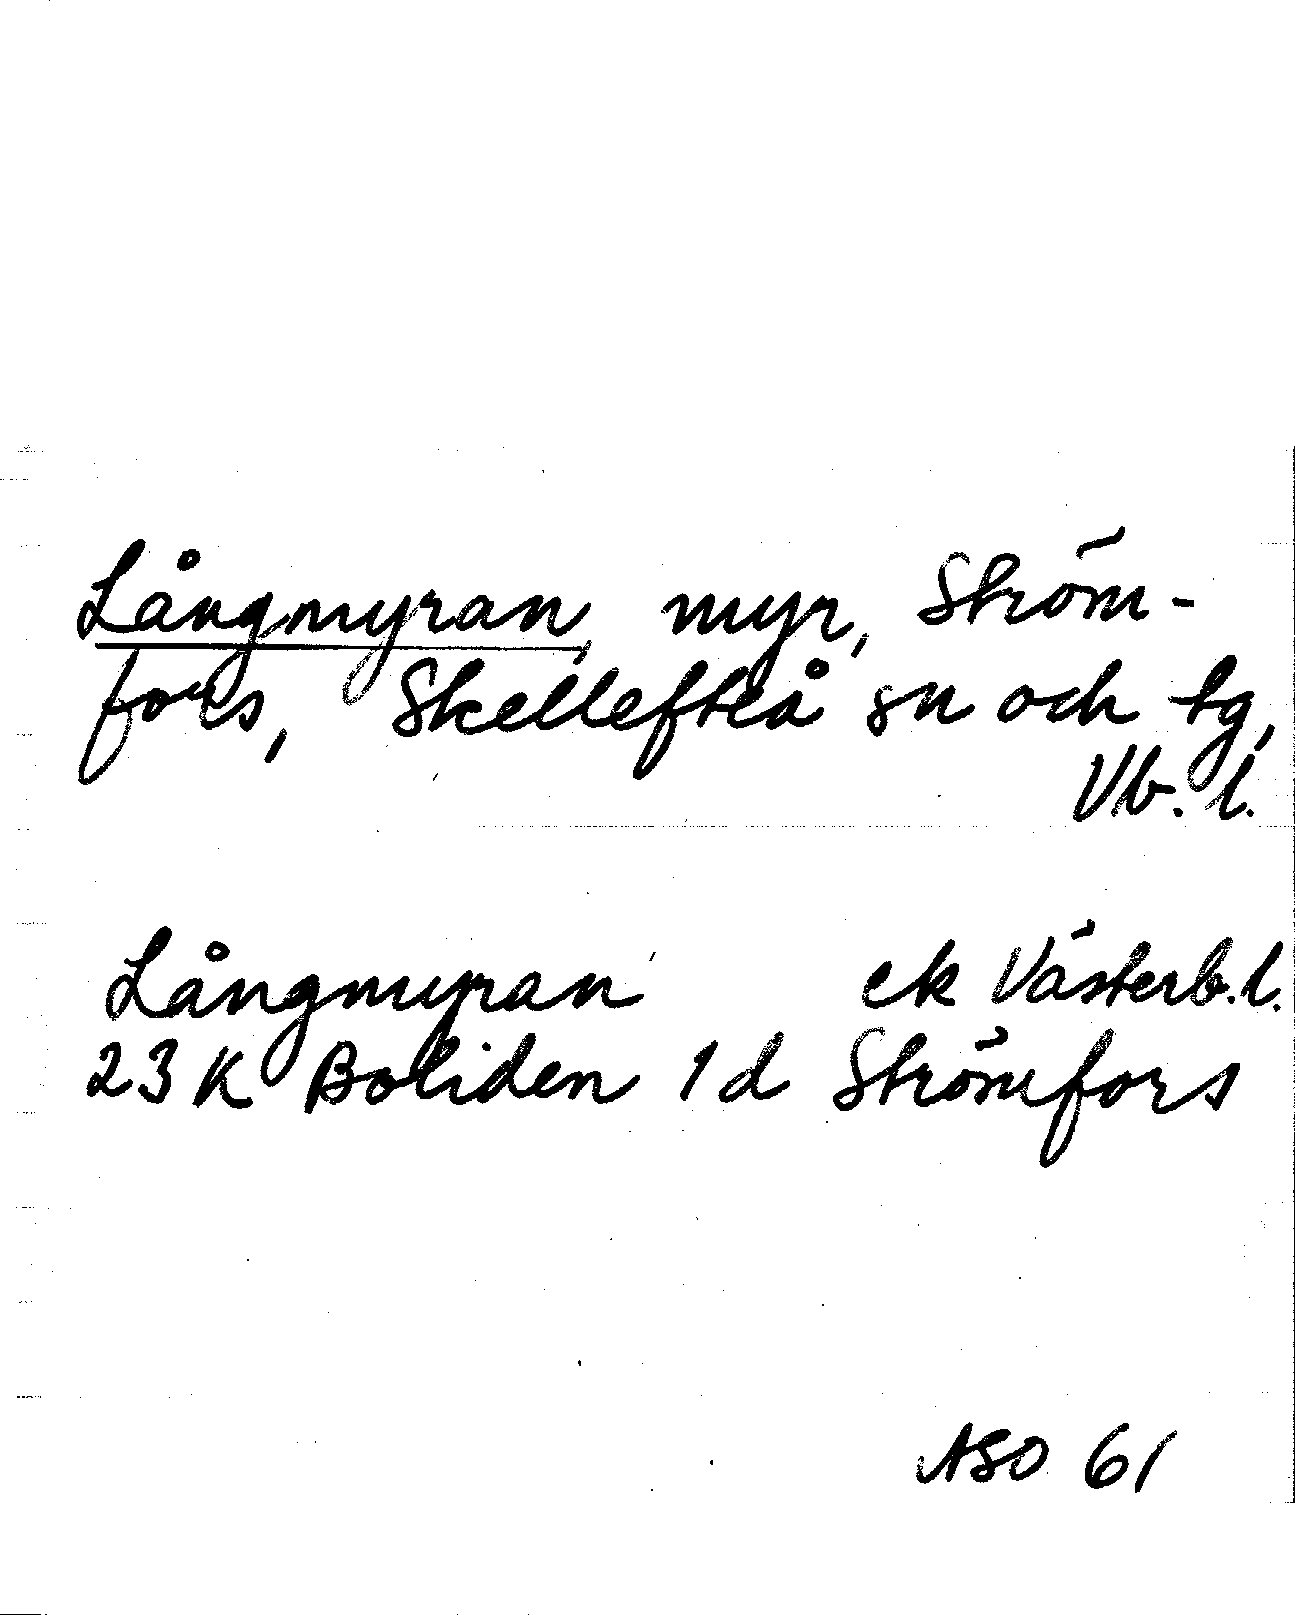 Långmyran, myr, Ström-
fors, Skellefteå sn och tg,
Vb. l.
Långmyran ek Västerb.l.
23 K Boliden 1d Strömfors
ASO 61